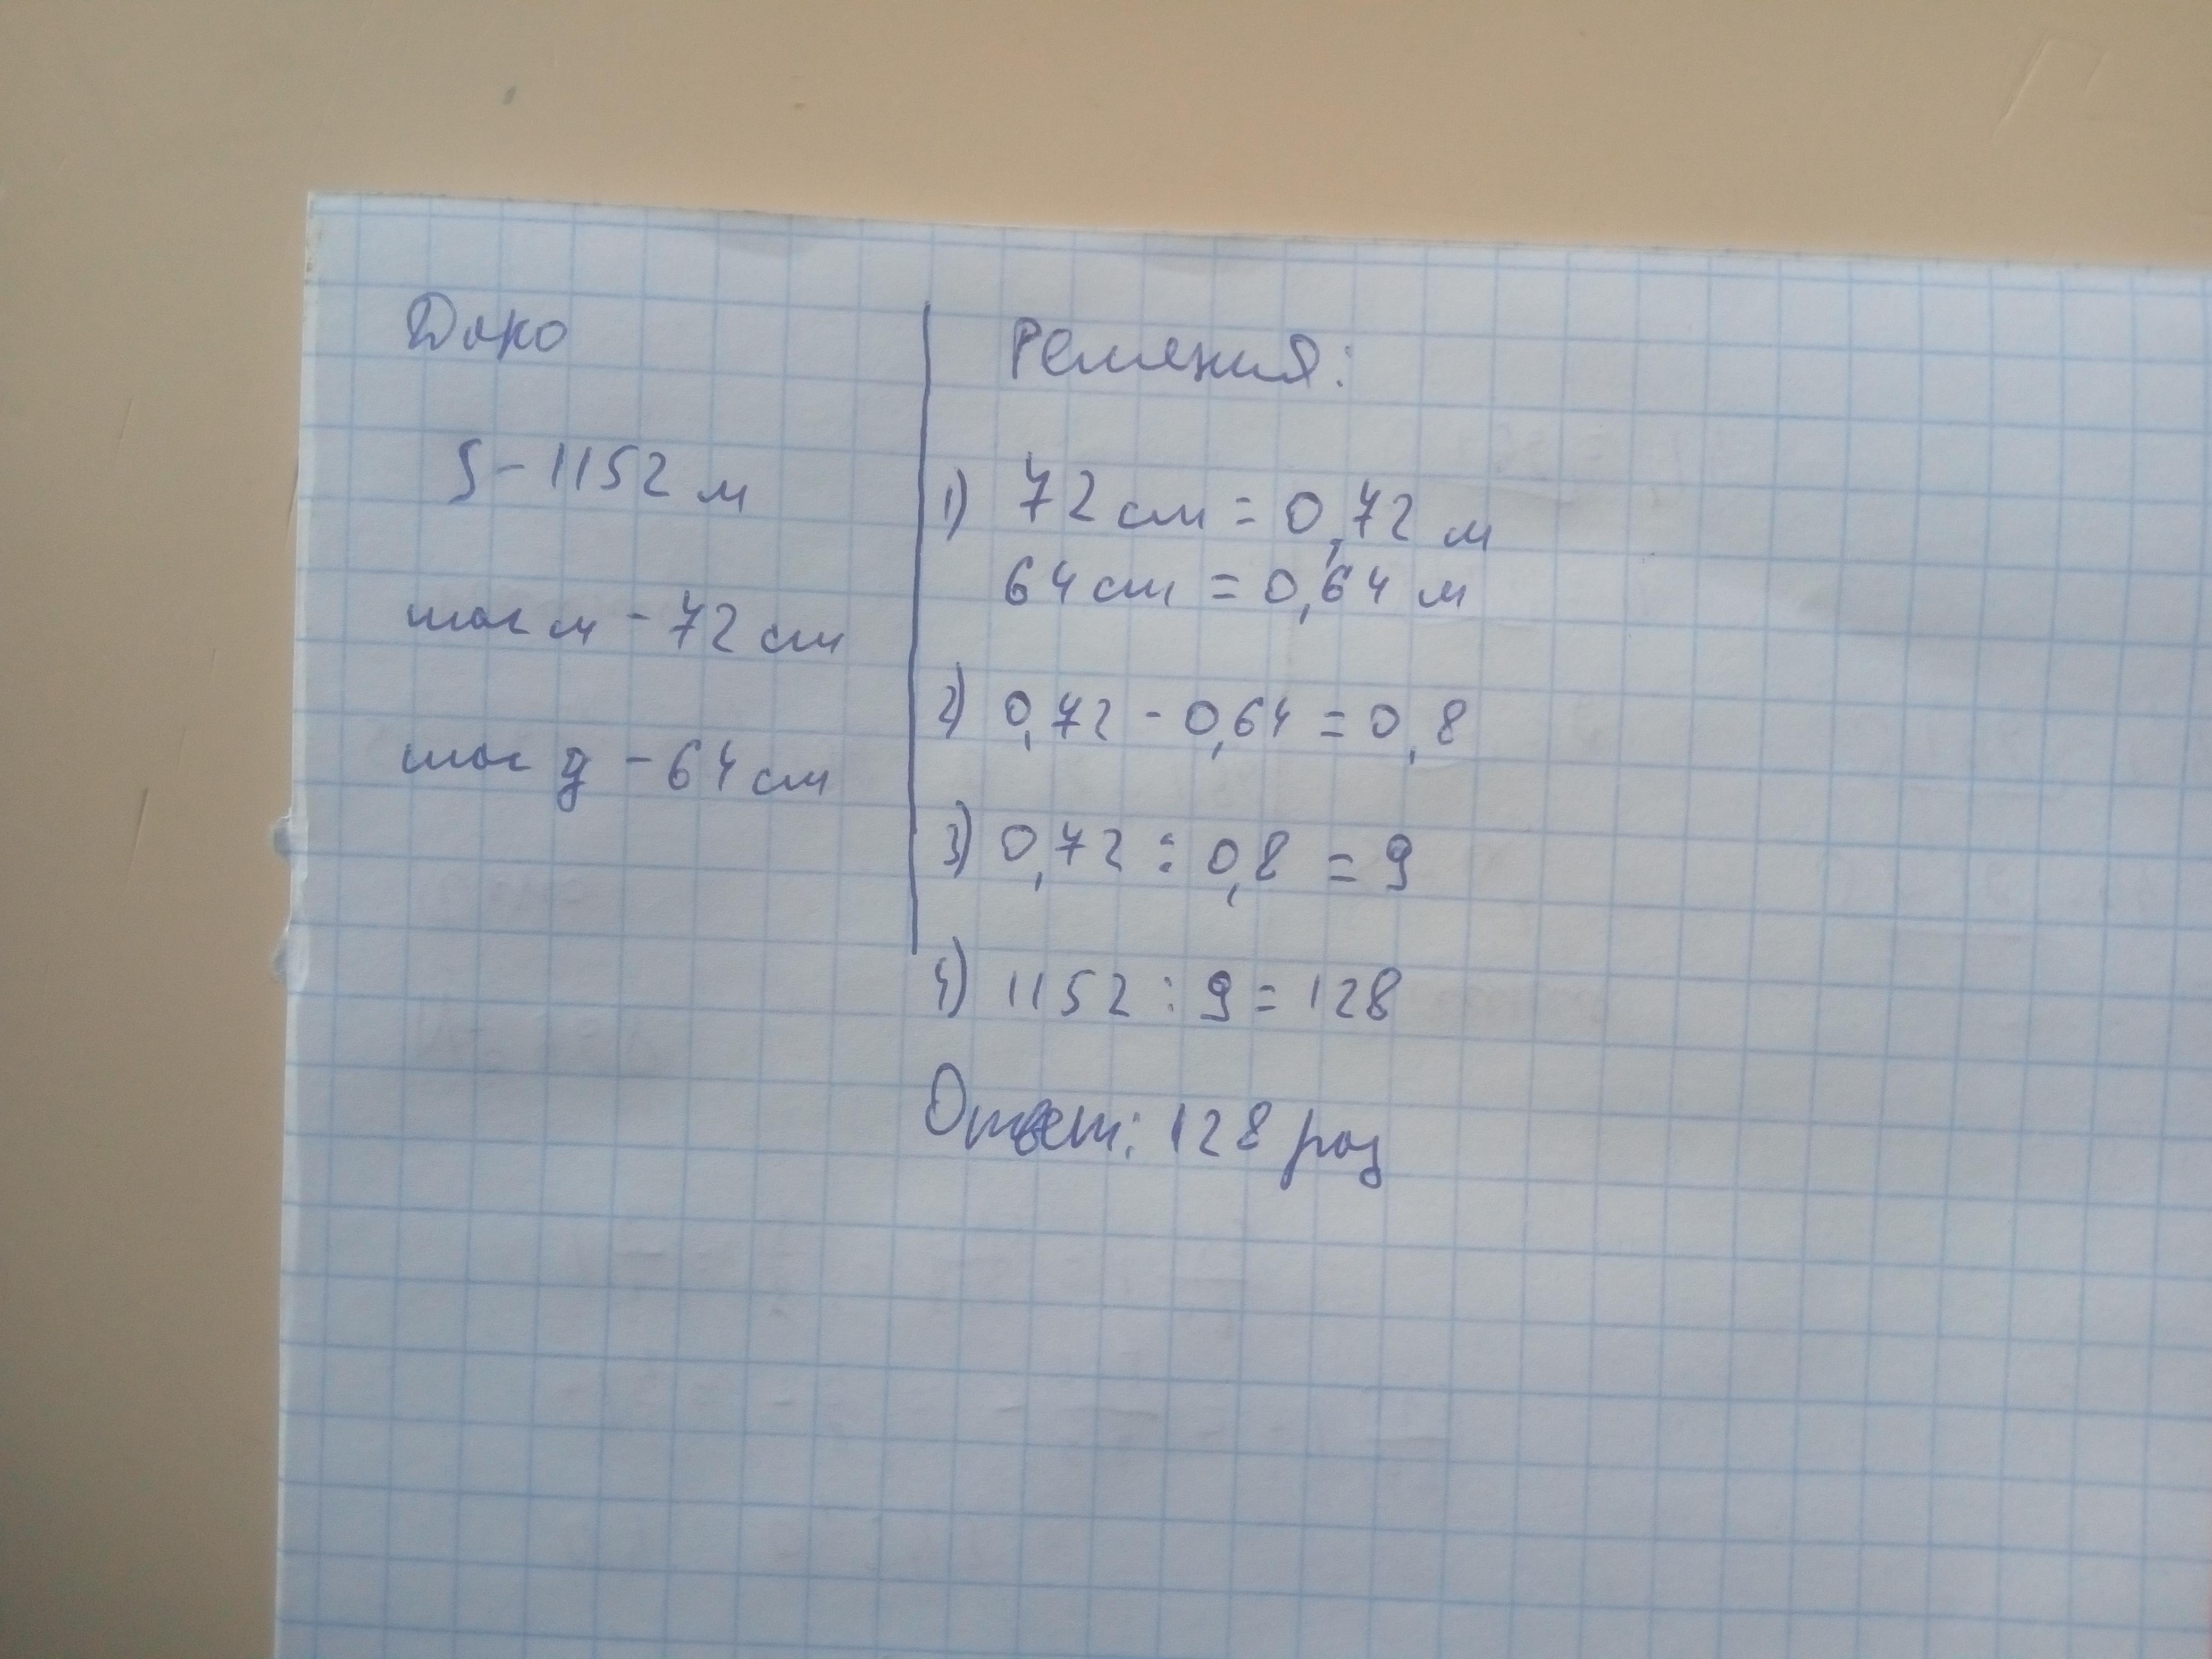 Дано
S - 1152 м
шаг м - 72 см
шаг д - 64 см
Решения:
1) 72 см = 0,72 м
64 см = 0,64 м
2) 0,72 - 0,64 = 0,8
3) 0,72 : 0,8 = 9
4) 1152 : 9 = 128
Ответ: 128 раз